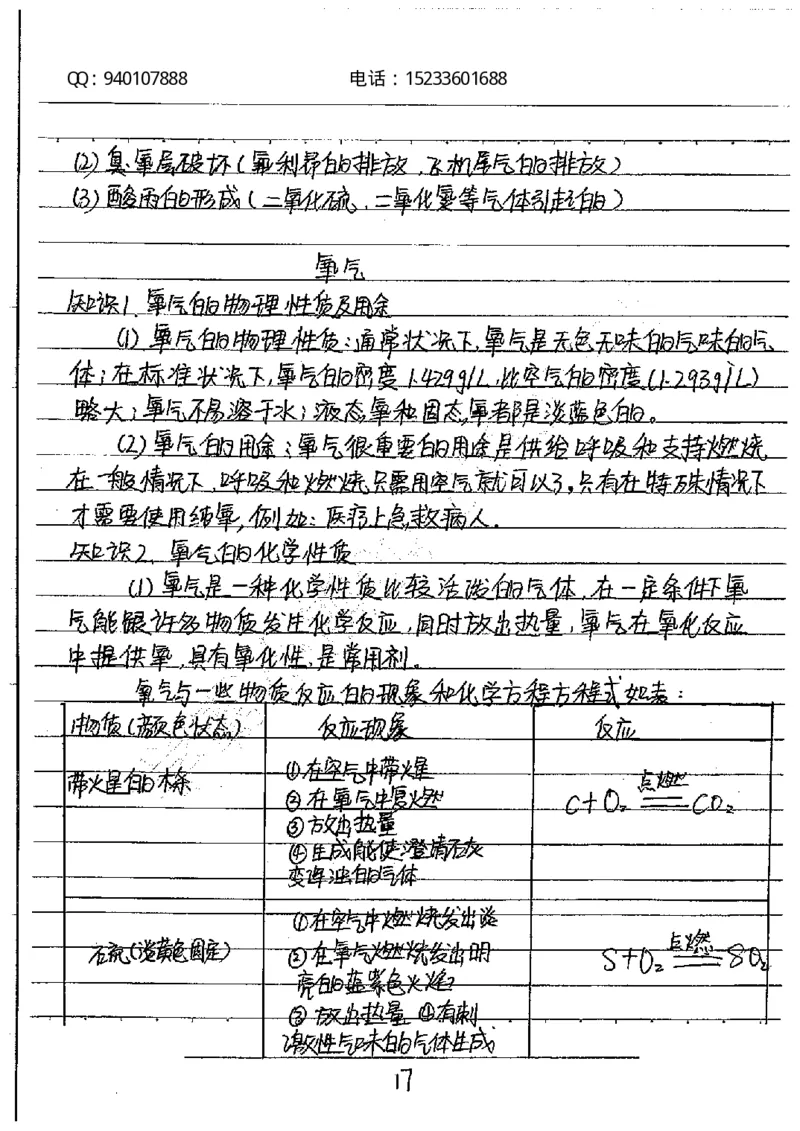 QQ：940107888 电话：15233601688
(2) 臭氧层破坏(氟利昂的排放、飞机尾气的排放)
(3) 酸雨的形成(二氧化硫、二氧化氮等气体引起的)
氧气
知识1、氧气的物理性质及用途
(1) 氧气的物理性质：通常状况下，氧气是无色无味的气味的气
体；在标准状况下，氧气的密度1.429g/L，比空气的密度(1.293g/L)
略大；氧气不易溶于水；液态氧和固态氧都是淡蓝色的。
(2) 氧气的用途：氧气很重要的用途是供给呼吸和支持燃烧
在一般情况下，呼吸和燃烧只需用空气就可以了。只有在特殊情况下
才需要使用纯氧，例如：医疗上急救病人.
知识2、氧气的化学性质
(1) 氧气是一种化学性质比较活泼的气体，在一定条件下氧
气能跟许多物质发生化学反应，同时放出热量，氧气在氧化反应
中提供氧，具有氧化性，是常用剂。
氧气与一些物质反应的现象和化学方程方程式如表：
物质(颜色状态) 反应现象 反应
带火星的木条
①在空气中带火星
②在氧气中复燃
③放出热量
④生成能使澄清石灰
变浑浊的气体
C+O₂ 点燃══ CO₂
石硫(淡黄色固定)
①在空气中燃烧发出淡
②在氧气燃烧发出明
亮的蓝紫色火焰
③放出热量 ④有刺
激性气味的气体生成
S+O₂ 点燃══ SO₂
17